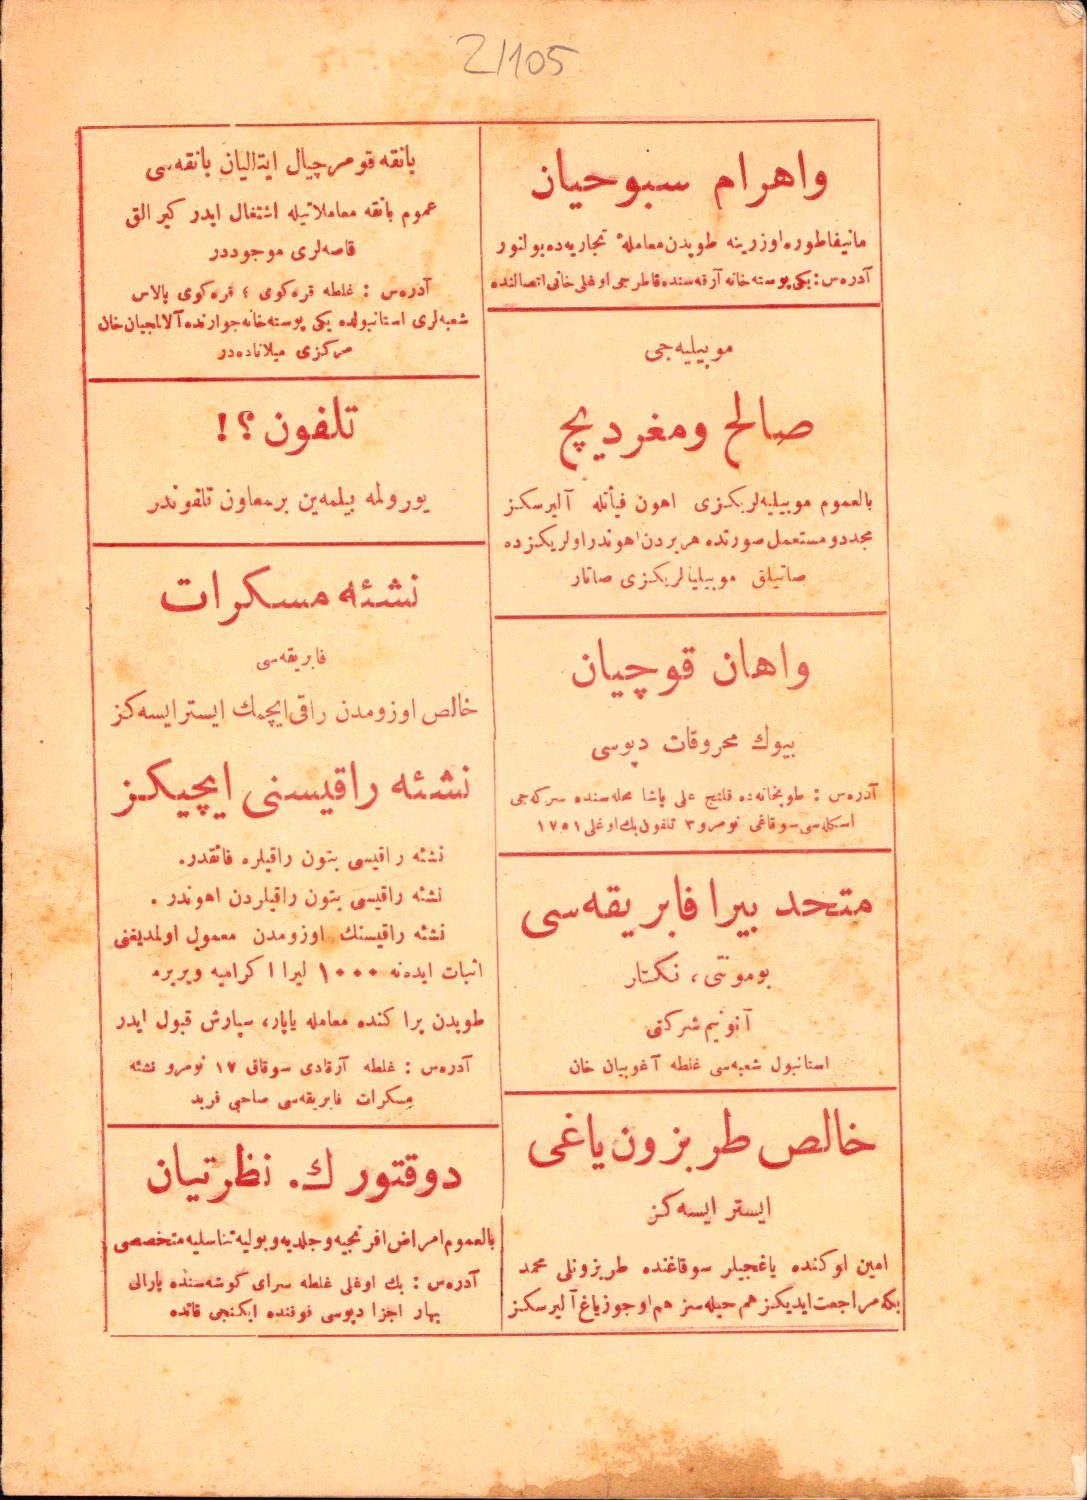 2/105
واهرام سبوحيان
مانيفاطوره اوزرينه طوپدن معاملهٔ تجاريه‌ده بولنور
آدره‌س : يكی پوسته‌خانه آرقه‌سنده قاطرجی اوغلی خانی اتصالنده
موبيليه‌جی
صالح ومغرديچ
بالعموم موبيليه‌لريكزی اهون فيأتله آليرسكز
مجدد و مستعمل صورتده هر يردن اهوندر اولريكزده
صاتيلق موبيليالريكزی صاتار
واهان قوچيان
بيوك محروقات دپوسی
آدره‌س : طوپخانه‌ده قلنج علی پاشا محله‌سنده سركه‌جی
اسكله‌سی سوقاغی نومرو ٣ تلفون بك اوغلی ١٧٥١
متحد بيرا فابريقه‌سی
بومونتی ، نكتار
آنونيم شركتی
استانبول شعبه‌سی غلطه آغوبيان خان
خالص طربزون ياغی
ايستر ايسه‌كز
امين اوكنده ياغجيلر سوقاغنده طربزونلی محمد
بكه مراجعت ايديكز هم حيله‌سز هم اوجوز ياغ آليرسكز
بانقه قومرچيال ايتاليان بانقه‌سی
عموم بانقه معاملاتيله اشتغال ايدر كيرالق
قاصه‌لری موجوددر
آدره‌س : غلطه قره‌كوی ؛ قره‌كوی پالاس
شعبه‌لری استانبولده يكی پوسته‌خانه جوارنده آلالمجيان خان
مركزی ميلاناده‌در
تلفون ؟!
يورولمه بيلمه‌ين بر معاون تلفوندر
نشئه مسكرات
فابريقه‌سی
خالص اوزومدن راقی ايچمك ايستر ايسه‌كز
نشئه راقيسنی ايچيكز
نشئه راقيسی بتون راقيلره فائقدر.
نشئه راقيسی بتون راقيلردن اهوندر .
نشئه راقيسنك اوزومدن معمول اولمديغنی
اثبات ايده‌نه ١٠٠٠ ليرا اكراميه ويريرم
طوپدن پراكنده معامله ياپار، سپارش قبول ايدر
آدره‌س : غلطه آرقادی سوقاق ١٧ نومرو نشئه
مسكرات فابريقه‌سی صاحبی فريد
دوقتور ك. نظرتيان
بالعموم امراض افرنجيه و جلديه و بوليه تناسليه متخصصی
آدره‌س : بك اوغلی غلطه سرای كوشه‌سنده پارالی
بهار اجزا دپوسی فوقنده ايكنجی قاتده